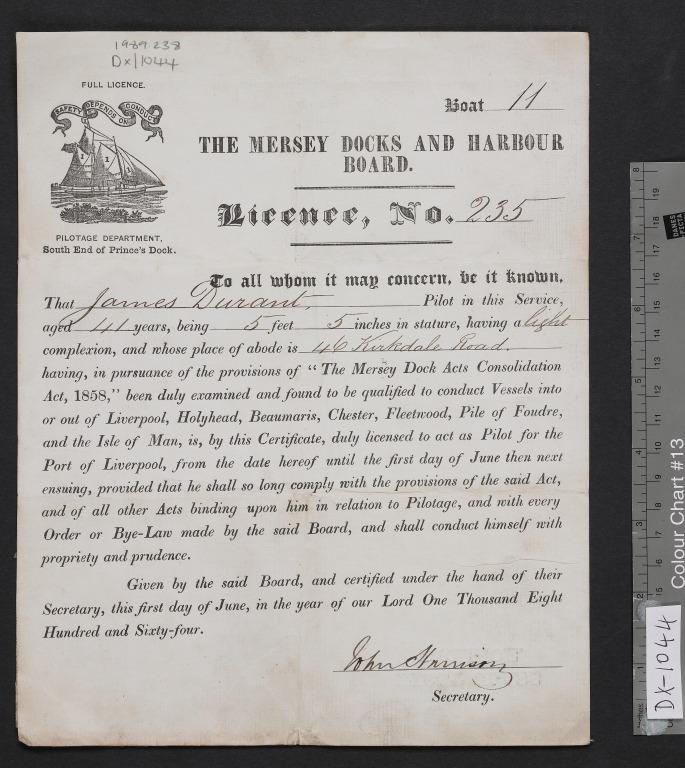 1989.238
Dx/1044
FULL LICENCE.
SAFETY DEPENDS ON CONDUCT
1 1 1
PILOTAGE DEPARTMENT,
South End of Prince's Dock.
Boat 11
THE MERSEY DOCKS AND HARBOUR
BOARD.
Licence, No. 235
To all whom it may concern, be it known,
That James Durant, Pilot in this Service,
aged 41 years, being 5 feet 5 inches in stature, having a light
complexion, and whose place of abode is 46 Kirkdale Road.
having, in pursuance of the provisions of "The Mersey Dock Acts Consolidation
Act, 1858," been duly examined and found to be qualified to conduct Vessels into
or out of Liverpool, Holyhead, Beaumaris, Chester, Fleetwood, Pile of Foudre,
and the Isle of Man, is, by this Certificate, duly licensed to act as Pilot for the
Port of Liverpool, from the date hereof until the first day of June then next
ensuing, provided that he shall so long comply with the provisions of the said Act,
and of all other Acts binding upon him in relation to Pilotage, and with every
Order or Bye-Law made by the said Board, and shall conduct himself with
propriety and prudence.
Given by the said Board, and certified under the hand of their
Secretary, this first day of June, in the year of our Lord One Thousand Eight
Hundred and Sixty-four.
John Harrison
Secretary.
Colour Chart #13
DX-1044